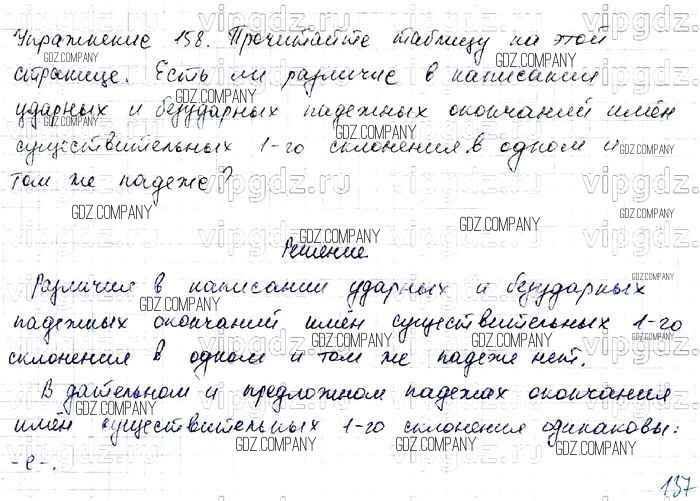 Упражнение 158. Прочитайте таблицу на этой
странице. Есть ли различие в написании
ударных и безударных падежных окончаний имён
существительных 1-го склонения в одном и
том же падеже?
Решение
Различия в написании ударных и безударных
падежных окончаний имён существительных 1-го
склонения в одном и том же падеже нет.
В дательном и предложном падежах окончания
имён существительных 1-го склонения одинаковы:
-е-.
137
vipgdz.ru
GDZ.COMPANY